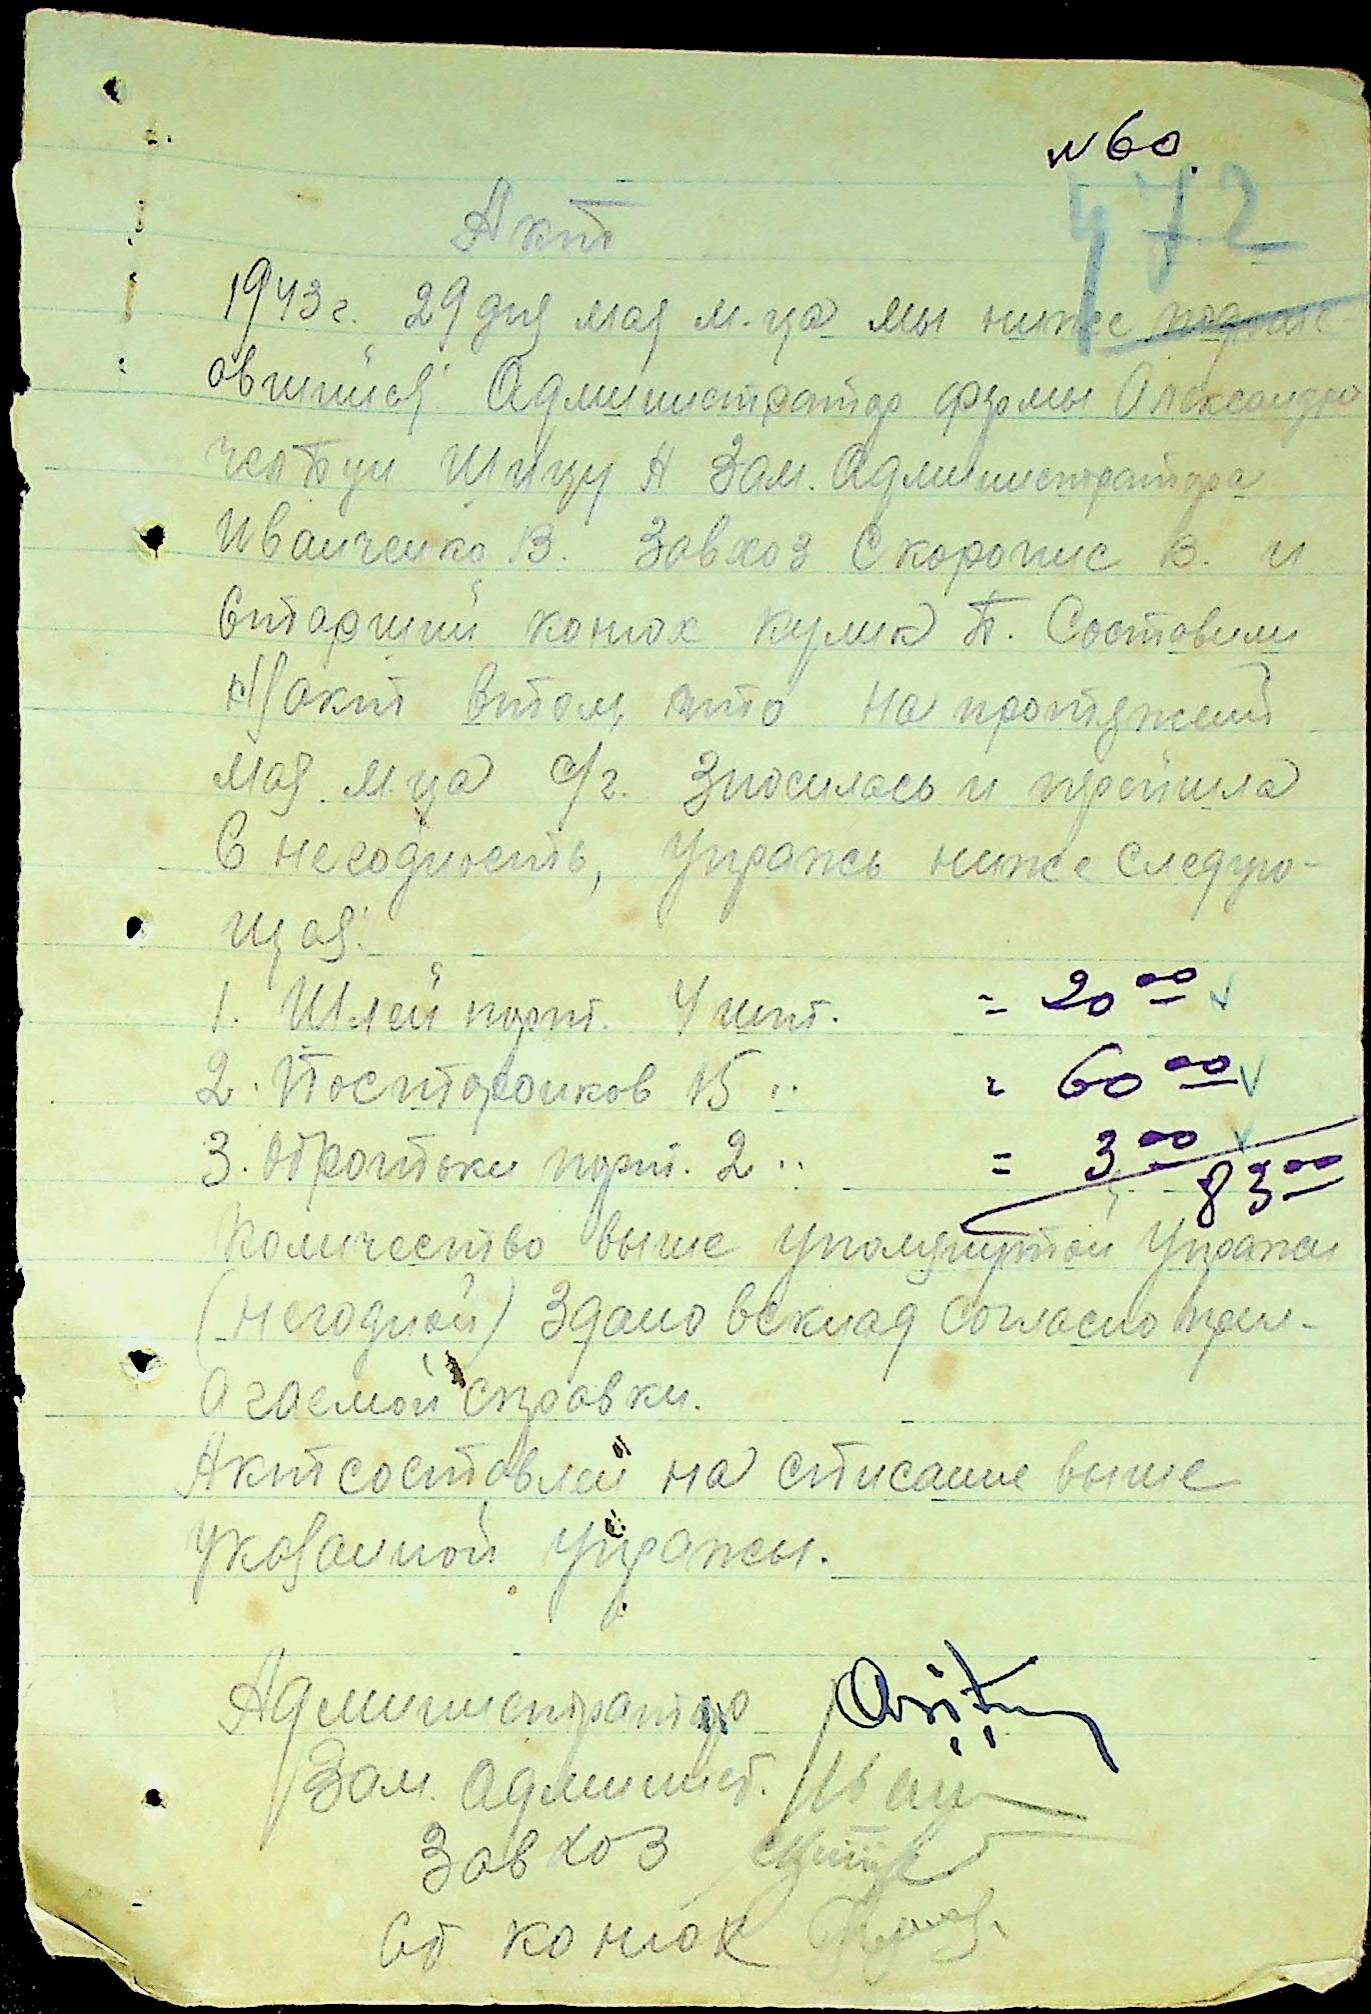 N 60.
472
Акт
1943 г. 29 дня мая м-ца мы ниже подпис-
авшийся Администратор фермы Александро
Шицу Н Зам. Администратора
Иванченко В. Завхоз Скоропис В. и
Старший конюх Кулик П. Составили
акт втом, што на протяжении
мая м-ца с/г. Зносилась и прейшла
в негодность, упряжь ниже следую-
щая:
1. Шлей порт. 4 шт. = 20 00
2. Посторонков 15 " = 60 00
3. Обротьки порт. 2 " = 3 00
83 00
Количество выше упомянутой упряжи
(негодной) Здано всклад согласно прил-
агаемой справки.
Акт составлен на списание выше
указанной упряжы.
Администратор
Зам. админист. Иван
Завхоз
Ст конюх